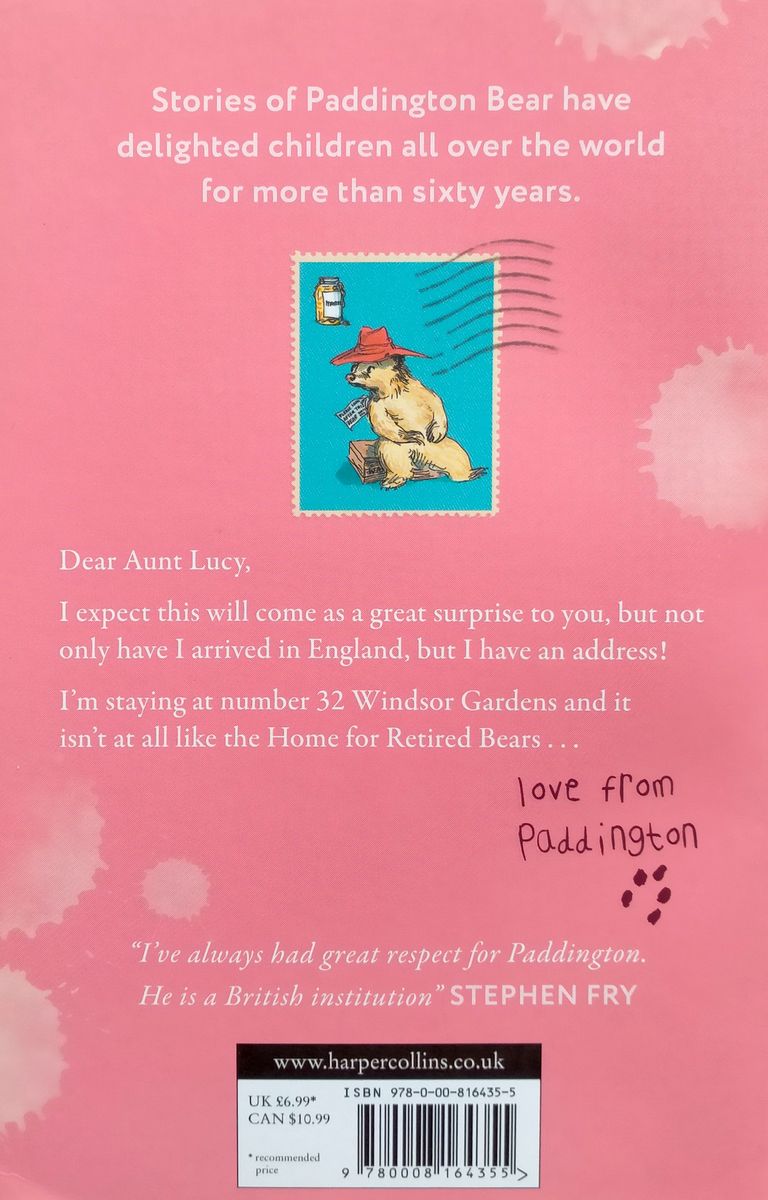 Stories of Paddington Bear have
delighted children all over the world
for more than sixty years.
Dear Aunt Lucy,
I expect this will come as a great surprise to you, but not
only have I arrived in England, but I have an address!
I'm staying at number 32 Windsor Gardens and it
isn't at all like the Home for Retired Bears . . .
love from
Paddington
“I've always had great respect for Paddington.
He is a British institution” STEPHEN FRY
www.harpercollins.co.uk
ISBN 978-0-00-816435-5
UK £6.99*
CAN $10.99
* recommended
price
9 780008 164355 >